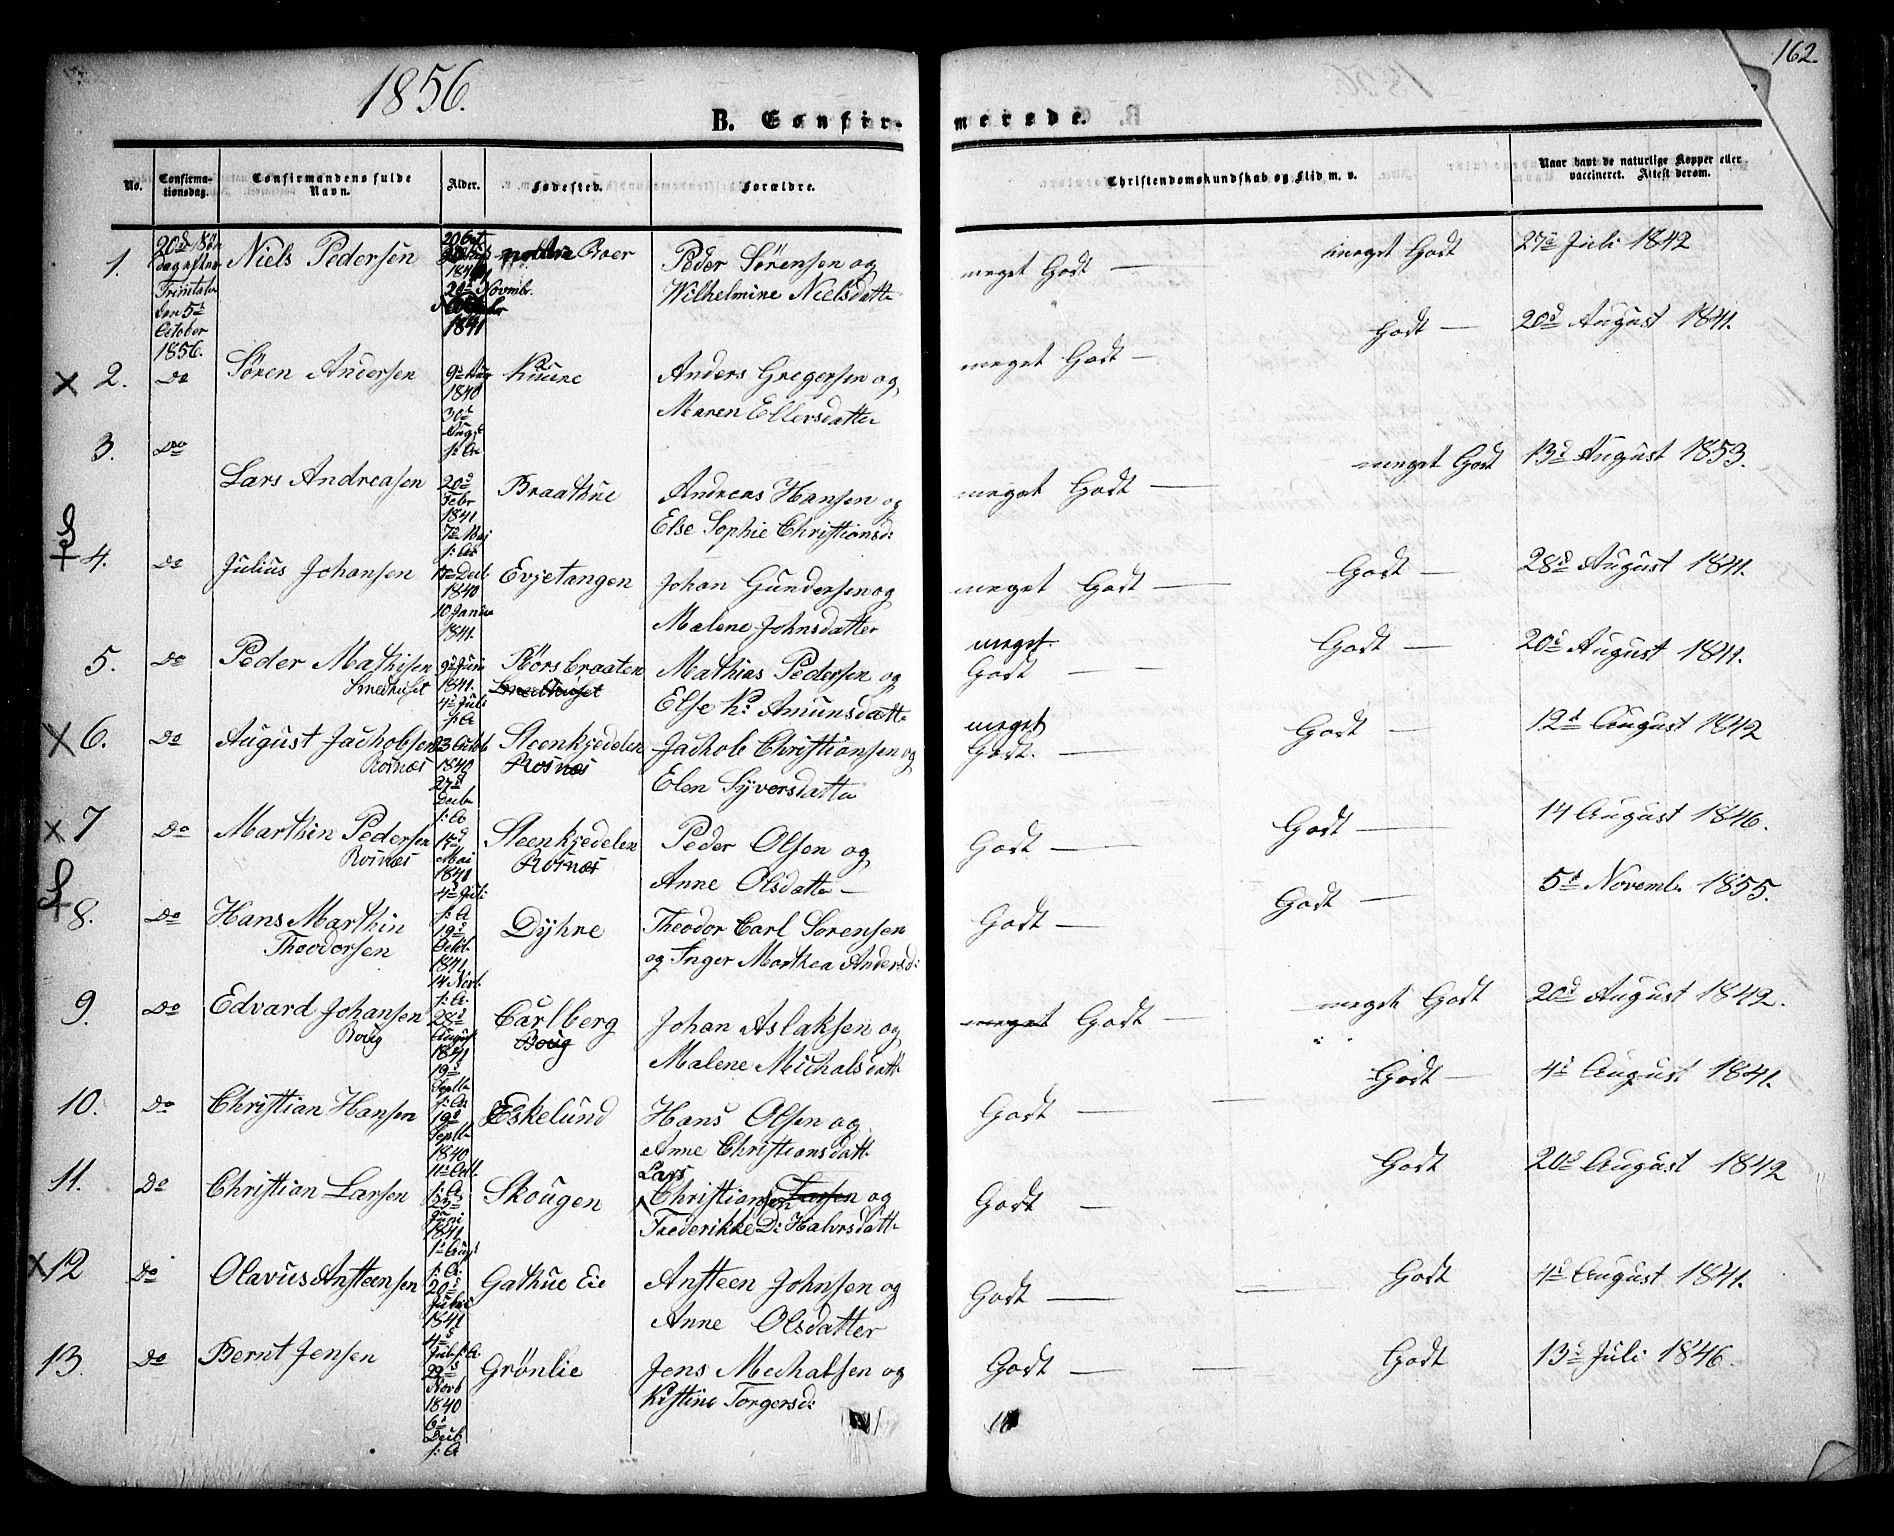 162.
1856.
B. Confirmerede.
No.
Confirmationsdag.
Confirmandens fulde Navn.
Alder.
Fødested.
Forældre.
Christendomskundskab og Flid m. v.
Naar havt de naturlige Kopper eller vaccineret. Attest derom.
1. 20de Søndag efter Trinitatis den 5te October 1856. Niels Pedersen 1841 Boer Peder Sørensen og Wilhelmine Nielsdatte meget Godt — meget Godt 27de Juli 1842
x 2. Do Søren Andersen 9de Aug 1840 30d Augst f: A Kuune Anders Gregersen og Maren Ellersdatte meget Godt — Godt — 20d August 1841.
3. Do Lars Andreasen 20d Febr 1841 7de Mai f: A Braathue Andreas Hansen og Else Sophie Christiansd: meget Godt — meget Godt 13d August 1853.
4. Do Julius Johansen 17de Decb 1840 10 Januar 1841. Evjetangen Johan Gundersen og Malene Johnsdatter meget Godt — Godt — 28d August 1841.
5. Do Peder Mathisen Smedhuset 9d Juni 1841. 4d Juli f: A Rørsbraaten Smedhuset Mathias Pedersen og Else K: Amunsdatte meget Godt — Godt — 20d August 1841.
x 6. Do August Jachobsen Rosnæs 23 Octob 1840 27d Decbr f: A Steenkjedelen Rosnæs Jachob Christiansen og Elen Syversdatte meget Godt. — Godt — 12d August 1842
x 7 Do Marthin Pedersen Rosnæs 17d Mai 1841 4d Juli f: A Steenkjedelen Rosnæs Peder Olsen og Anne Olsdatte — Godt — Godt — 14 August 1846.
8. Do Hans Marthin Theodorsen 19d Octob. 1841 14 Novb. f: A. Dyhre Theodor Carl Sorensen og Inger Marthea Andersd: Godt — Godt — 5d Novemb. 1855.
9. Do Edvard Johansen Boug 28d August 1841 19d Septb f: A Carlberg Boug Johan Aslaksen og Malene Michalsdatt meget Godt — meget Godt 20d August 1842.
10. Do Christian Hansen 19d Septb 1840 11d Octb. f: A Eskelund Hans Olsen og Anne Christiansdatt. Godt — Godt — 4d August 1841.
11. Do Christian Larsen 23d Juni 1841 1d Augst f: A. Skougen Lars Christiansen Larsen og Frederikke D: Halvrsdatt Godt — Godt 20d August 1842
x 12 Do Olavus Ansteensen 20d 1841 4d Juli f: A. Gathue Eie Ansteen Johnsen og Anne Olsdatter Godt — Godt 4d August 1841.
13. Do Bernt Jensen 22d Novb 1840 6d Decb f: A Grønlie Jens Michalsen og Kistine Torgersd: Godt — Godt 13d Juli 1846.